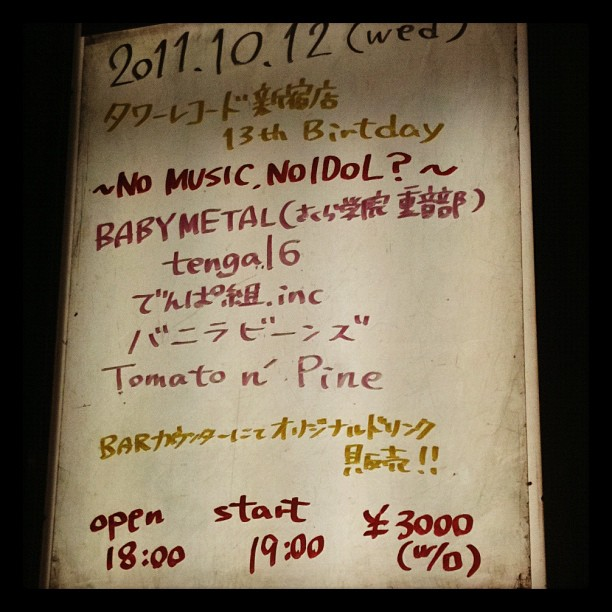 2011.10.12 (wed)
タワーレコード新宿店
13th Birtday
~NO MUSIC, NO IDOL? ~
BABYMETAL (さくら学院 重音部)
tengal6
でんぱ組.inc
バニラビーンズ
Tomato n' Pine
BARカウンターにてオリジナルドリンク
販売!!
open start ¥3000
18:00 19:00 (w/D)